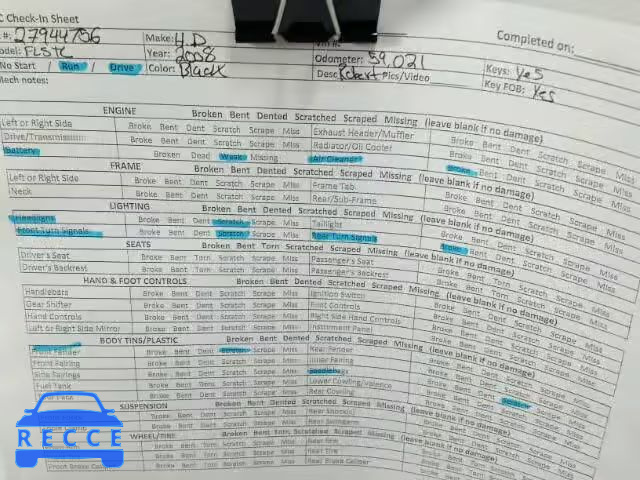 C Check-In Sheet
#: 27944706 Make: H.D Completed on:
odel: FLSTC Year: 2008 Odometer: 59,021 Keys: Yes
No Start / Run / Drive Color: Black Desc Robert Pics/Video Key FOB: Yes
Mech notes:
ENGINE Broken Bent Dented Scratched Scraped Missing (leave blank if no damage)
Left or Right Side Broke Bent Dent Scratch Scrape Miss Exhaust Header/Muffler Broke Bent Dent Scratch Scrape Miss
Drive/Transmission Broke Bent Dent Scratch Scrape Miss Radiator/Oil Cooler Broke Bent Dent Scratch Scrape Miss
Battery Broken Dead Weak Missing Air Cleaner Broke Bent Dent Scratch Scrape Miss
FRAME Broken Bent Dented Scratched Scraped Missing (leave blank if no damage)
Left or Right Side Broke Bent Dent Scratch Scrape Miss Frame Tab Broke Bent Dent Scratch Scrape Miss
Neck Broke Bent Dent Scratch Scrape Miss Rear/Sub-Frame Broke Bent Dent Scratch Scrape Miss
LIGHTING Broken Bent Dented Scratched Scraped Missing (leave blank if no damage)
Headlights Broke Bent Dent Scratch Scrape Miss Taillight Broke Bent Dent Scratch Scrape Miss
Front Turn Signals Broke Bent Dent Scratch Scrape Miss Rear Turn Signals Broke Bent Dent Scratch Scrape Miss
SEATS Broken Bent Torn Scratched Scraped Missing (leave blank if no damage)
Driver's Seat Broke Bent Torn Scratch Scrape Miss Passenger's Seat Broke Bent Torn Scratch Scrape Miss
Driver's Backrest Broke Bent Torn Scratch Scrape Miss Passenger's Backrest Broke Bent Torn Scratch Scrape Miss
HAND & FOOT CONTROLS Broken Bent Dented Scratched Scraped Missing (leave blank if no damage)
Handlebars Broke Bent Dent Scratch Scrape Miss Ignition Switch Broke Bent Dent Scratch Scrape Miss
Gear Shifter Broke Bent Dent Scratch Scrape Miss Foot Controls Broke Bent Dent Scratch Scrape Miss
Hand Controls Broke Bent Dent Scratch Scrape Miss Right Side Hand Controls Broke Bent Dent Scratch Scrape Miss
Left or Right Side Mirror Broke Bent Dent Scratch Scrape Miss Instrument Panel Broke Bent Dent Scratch Scrape Miss
BODY TINS/PLASTIC Broken Bent Dented Scratched Scraped Missing (leave blank if no damage)
Front Fender Broke Bent Dent Scratch Scrape Miss Rear Fender Broke Bent Dent Scratch Scrape Miss
Front Fairing Broke Bent Dent Scratch Scrape Miss Rear Fairing Broke Bent Dent Scratch Scrape Miss
Side Fairings Broke Bent Dent Scratch Scrape Miss Saddlebags Broke Bent Dent Scratch Scrape Miss
Fuel Tank Broke Bent Dent Scratch Scrape Miss Lower Cowling/Valence Broke Bent Dent Scratch Scrape Miss
Broke Bent Dent Scratch Scrape Miss Rear Cowling Broke Bent Dent Scratch Scrape Miss
SUSPENSION Broken Bent Dented Scratched Scraped Missing (leave blank if no damage)
Broke Bent Dent Scratch Scrape Miss Rear Shock(s) Broke Bent Dent Scratch Scrape Miss
Broke Bent Dent Scratch Scrape Miss Rear Swingarm Broke Bent Dent Scratch Scrape Miss
WHEEL/TIRE Broken Bent Torn Scratched Scraped Missing (leave blank if no damage)
Broke Bent Torn Scratch Scrape Miss Rear Rim
Broke Bent Torn Scratch Scrape Miss Rear Tire
Front Brake Caliper Broke Bent Torn Scratch Scrape Miss Rear Brake Caliper
RECCE